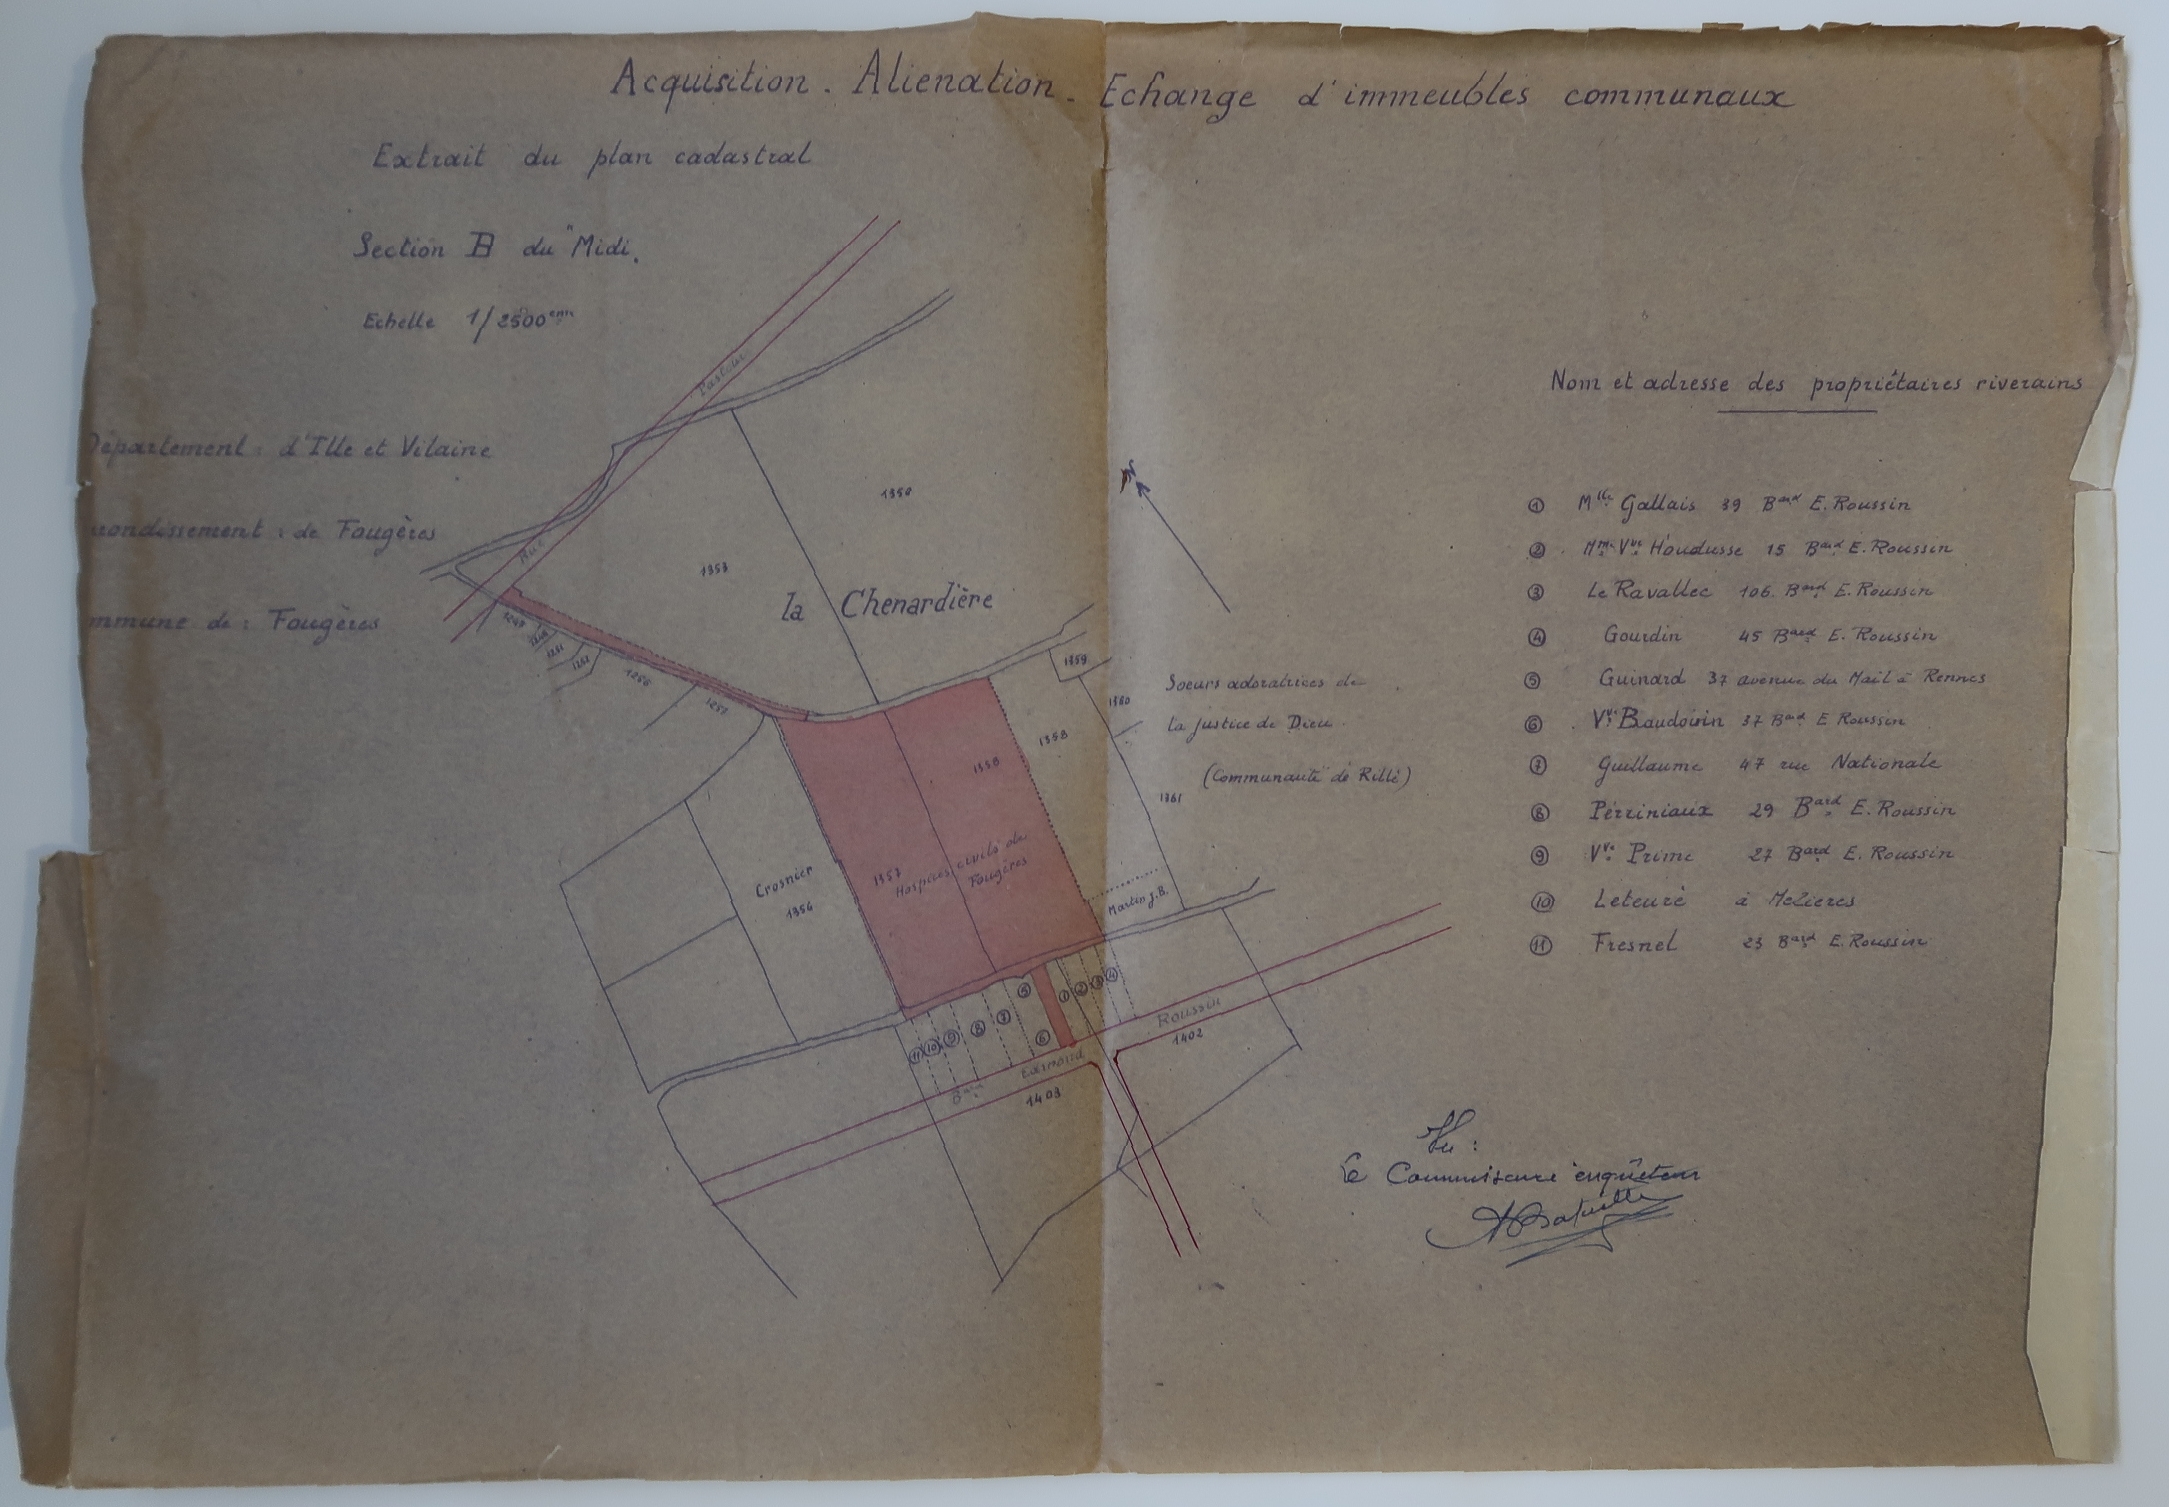 Acquisition . Alienation . Echange d'immeubles communaux
Extrait du plan cadastral
Section B du Midi.
Echelle 1/2500eme
Département : d'Ille et Vilaine
rondissement : de Fougères
mmune de : Fougères
Nom et adresse des propriétaires riverains
① Mlle Gallais 39 Bard E. Roussin
② Mme Vve Houdusse 15 Bard E. Roussin
③ Le Ravallec 106 Bard E. Roussin
④ Gourdin 45 Bard E. Roussin
⑤ Guinard 37 avenue du Mail à Rennes
⑥ Vve Baudoirin 37 Bard E Roussin
⑦ Guillaume 47 rue Nationale
⑧ Perriniaux 29 Bard E. Roussin
⑨ Vve Prime 27 Bard E. Roussin
⑩ Leteuré à Mezieres
⑪ Fresnel 23 Bard E. Roussin
Rue Pasteur
1350
1353
la Chenardière
1249
1251
1252
1256
1257
1359
1360
1358
1361
Soeurs adoratrices de
la justice de Dieu
(Communauté de Rillé)
1358
1357
Hospices civils de
Fougères
Crosnier
1354
Martin J.B.
⑤ ① ② ③ ④
⑪ ⑩ ⑨ ⑧ ⑦ ⑥
Bard Edmond Roussin
1402
1403
Vu :
Le Commissaire enquêteur